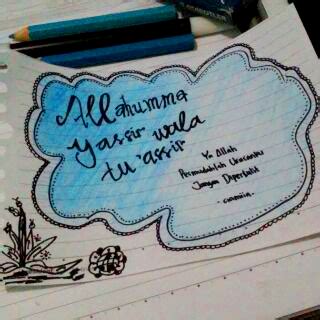 Allahumma
yassir wala
tu'assir
Ya Allah
Permudahlah Urusanku
Jangan Dipersulit
- aamiin -
STAEDTLER